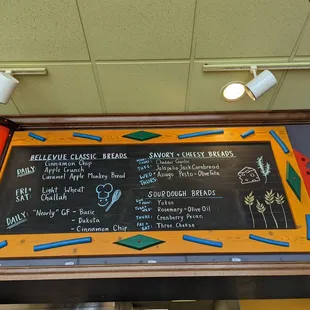 BELLEVUE CLASSIC BREADS
DAILY:
Cinnamon Chip
Apple Crunch
Caramel Apple Monkey Bread
FRI +
SAT
Light Wheat
Challah
DAILY
"Nearly" GF - Basic
- Dakota
- Cinnamon Chip
SAVORY + CHEESY BREADS
Cheddar Garlic
Jalapeño Jack Cornbread
Asiago
Pesto + Olive Feta
SOURDOUGH BREADS
Yukon
Rosemary + Olive Oil
Cranberry Pecan
Three Cheese